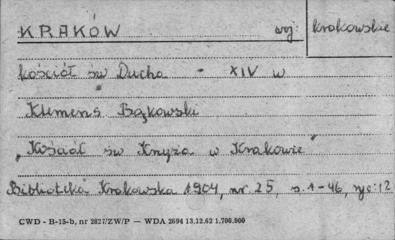 KRAKÓW woj: krakowskie
kościół św Ducha - XIV w
Klemens Bąkowski
"Kościół św Krzyża w Krakowie"
Biblioteka Krakowska 1904, nr 25, s. 1-46, ryc: 12
CWD - B-15-b, nr 2827/ZW/P — WDA 2694 13.12.62 1.700.000